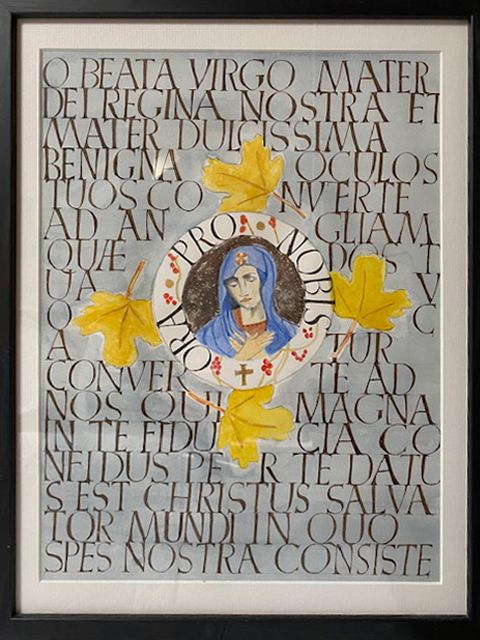 O BEATA VIRGO MATER
DEI REGINA NOSTRA ET
MATER DULCISSIMA
BENIGNA OCULOS
TUOS CO NVERTE
AD AN GLIAM
QUÆ DOS T
UA V
O C
A TUR
CONVER TE AD
NOS QUI MAGNA
IN TE FIDU CIA CO
NFIDUS PE R TE DATU
S EST CHRISTUS SALVA
TOR MUNDI IN QUO
SPES NOSTRA CONSISTE
ORA PRO NOBIS